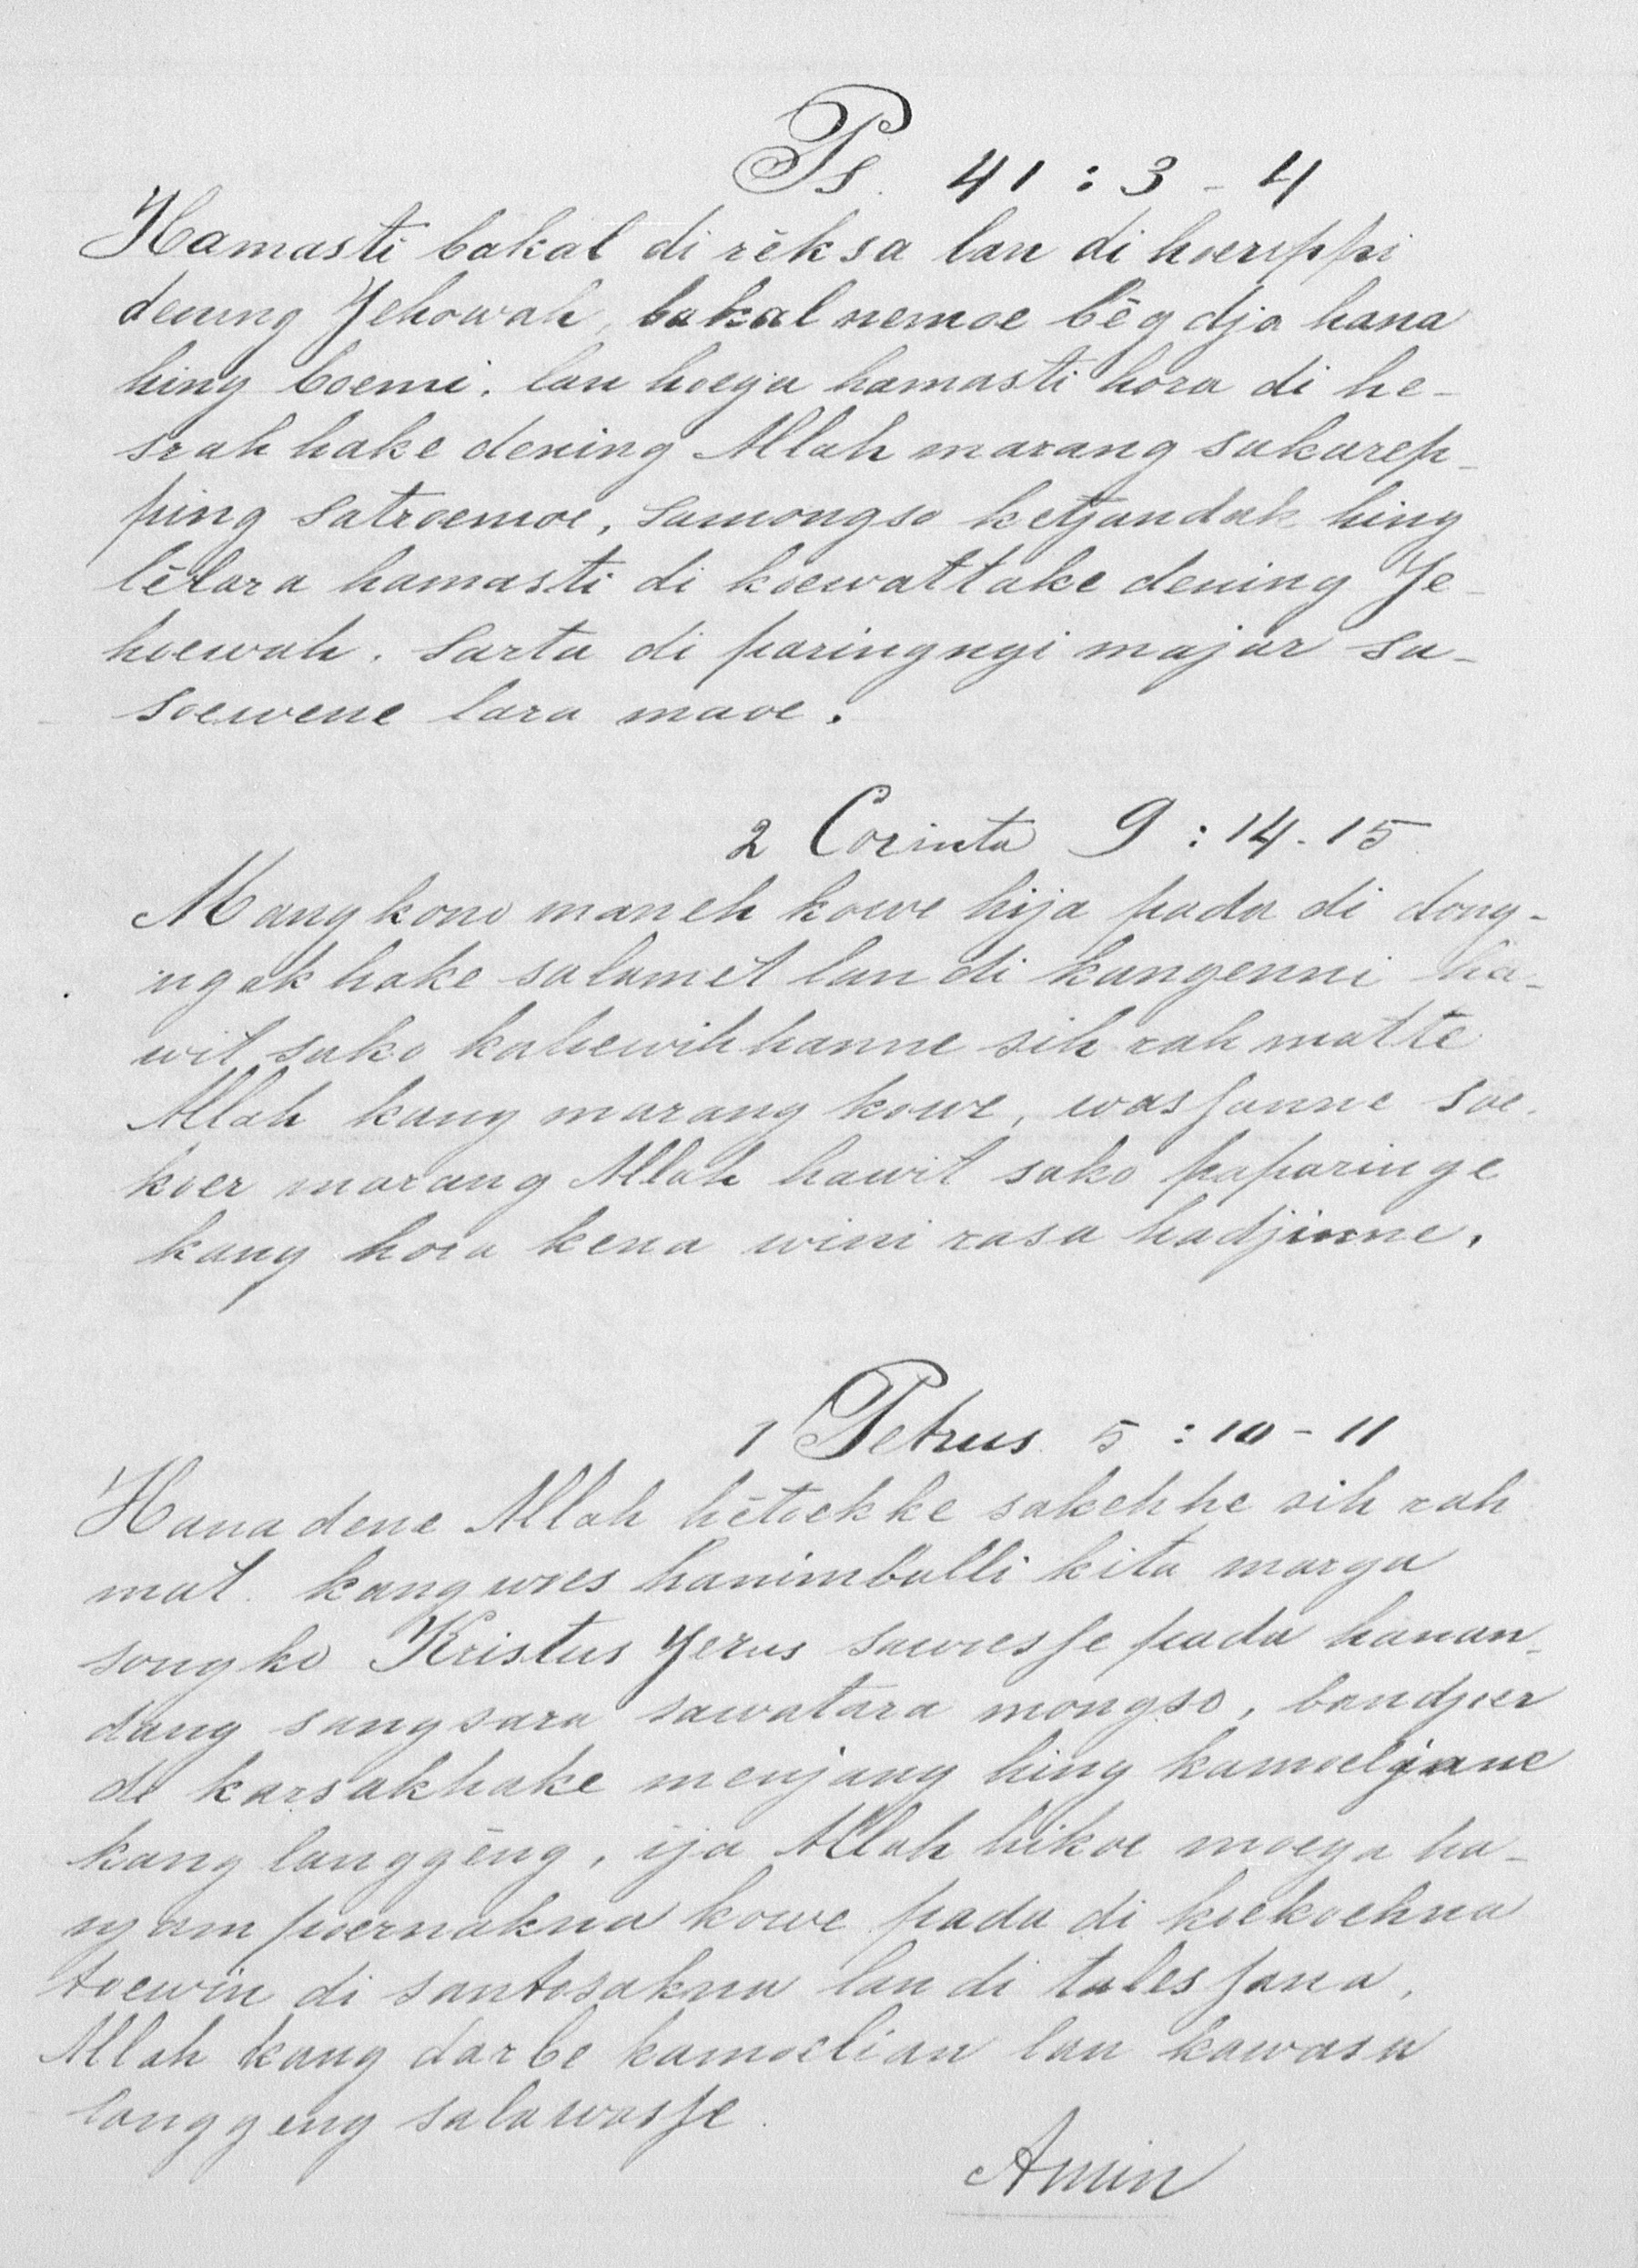 Ps. 41 : 3 - 4
Hamasti bakal di rĕksa lan di hoerippi
dening Jehowah, bakal nemoe bĕgdja hana
hing boemi. lan hoega hamasti hora di he-
srah hake dening Allah marang sakarep-
ping satroemoe, samongso ketjandak hing
lĕlara hamasti di koewattake dening Je-
hoewah. Sarta di paringngi majar sa-
soewene lara maoe.
2 Corinta 9 : 14-15
Mangkono maneh kowe hija pada di dong-
ngak hake salamet lan di kangenni ha-
wit sako kaliewihhanne sih rahmatte
Allah kang marang kowe, wassanne soe-
koer marang Allah hawit sako paparinge
kang hora kena winirasa hadjinne.
1 Petrus 5 : 10-11
Hanadene Allah hĕtoekke sakehhe sih rah
mat. kang woes hanimballi kita marga
songko Kristus Jezus sawoesse pada hanan-
dang sangsara sawatara mongso, bandjoer
di karsakhake menjang hing kamoeljane
kang langgĕng, ija Allah hikoe moega ha-
njampoernakna kowe pada di koekoehna
toewin di santosakna lan di talessana,
Allah kang darbe kamoelian lan kawasa
langgeng salawasse.
Amin